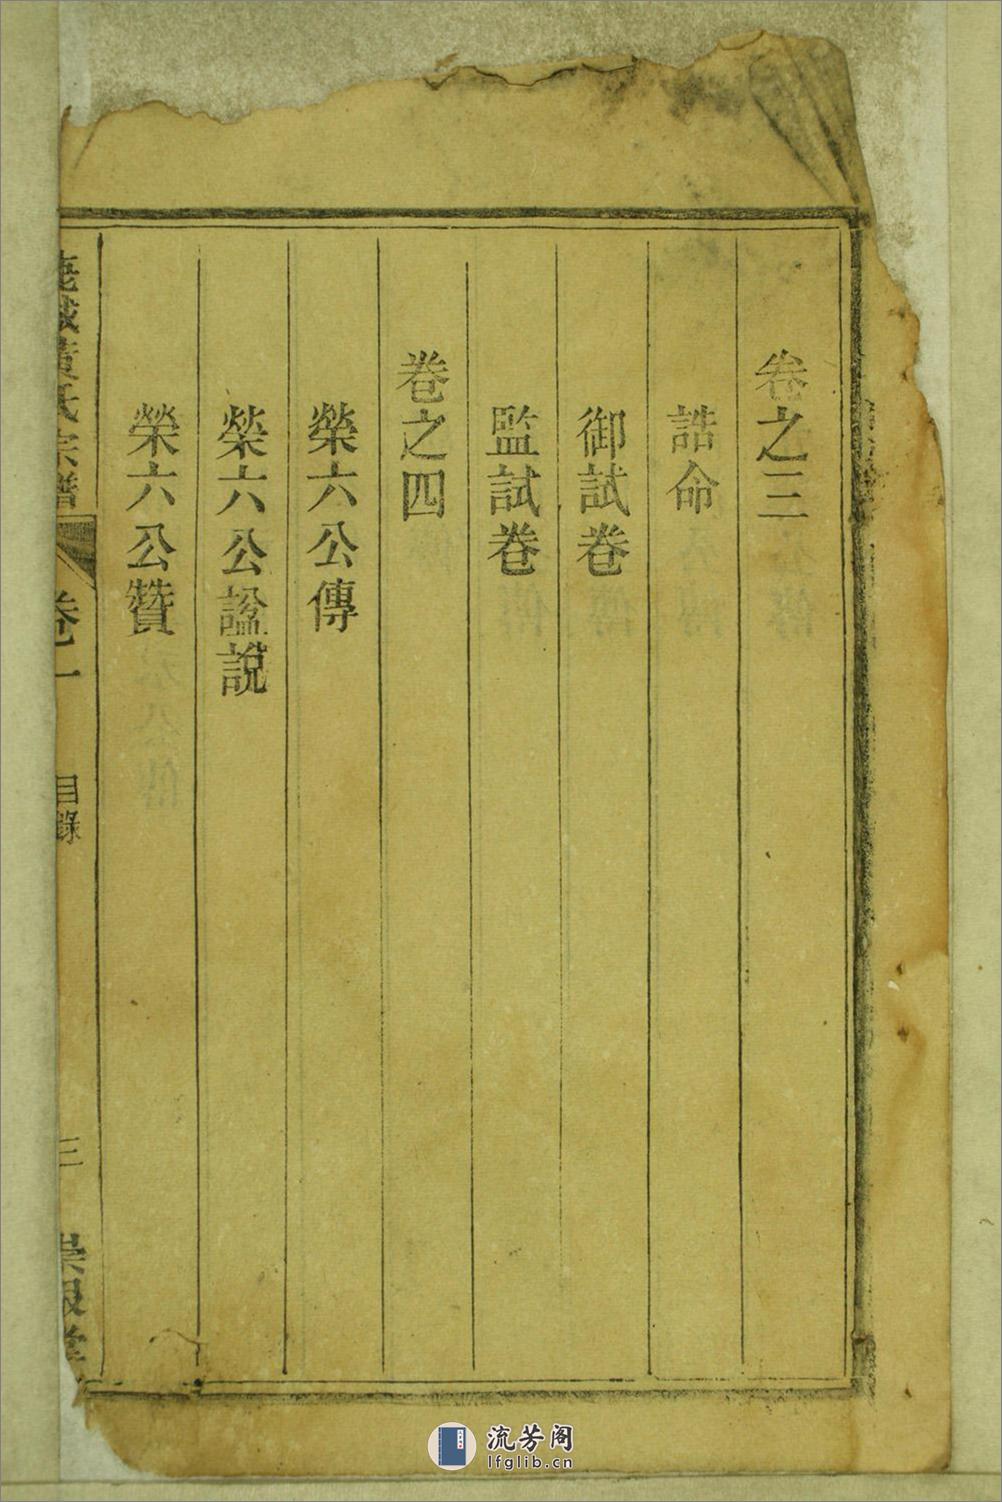 卷之三
誥命
御試卷
監試卷
卷之四
榮六公傳
榮六公諡說
榮六公贊
鹿城黃氏宗譜
卷一
目錄
三
崇報堂
流芳阁
lfglib.cn